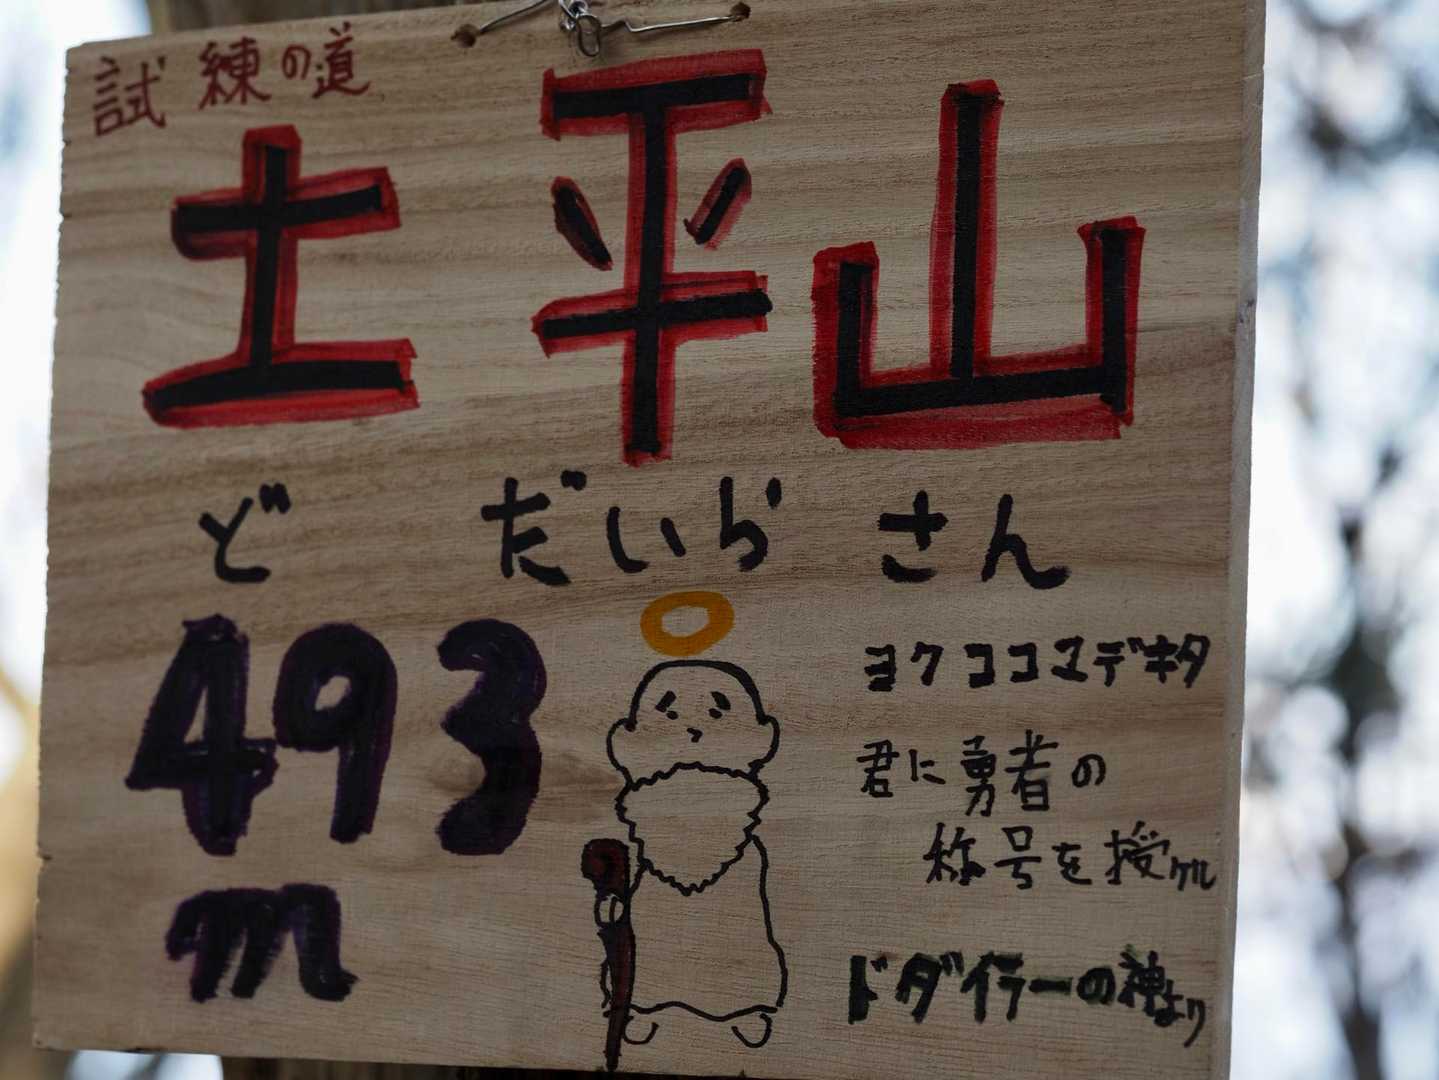 試練の道
土平山
どだいらさん
493
m
ヨクココマデキタ
君に勇者の
称号を授ケル
ドダイラーの神より